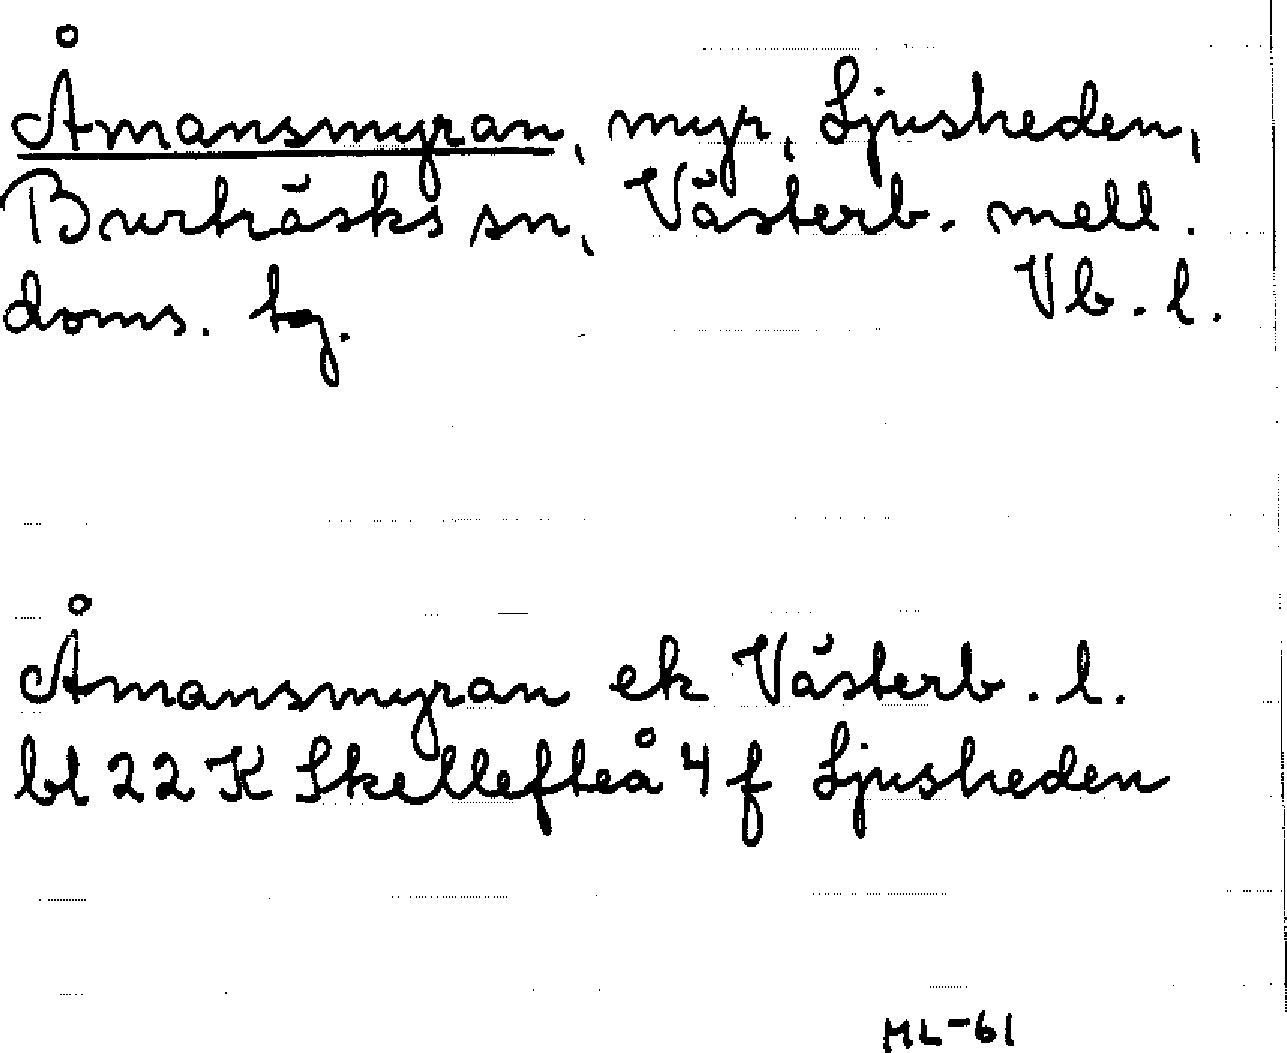 Åmansmyran, myr, Ljusheden,
Burträsks sn, Västerb. mell.
doms. tg. Vb. l.
Åmansmyran ek Västerb. l.
bl 22 K Skellefteå 4 f Ljusheden
ML-61